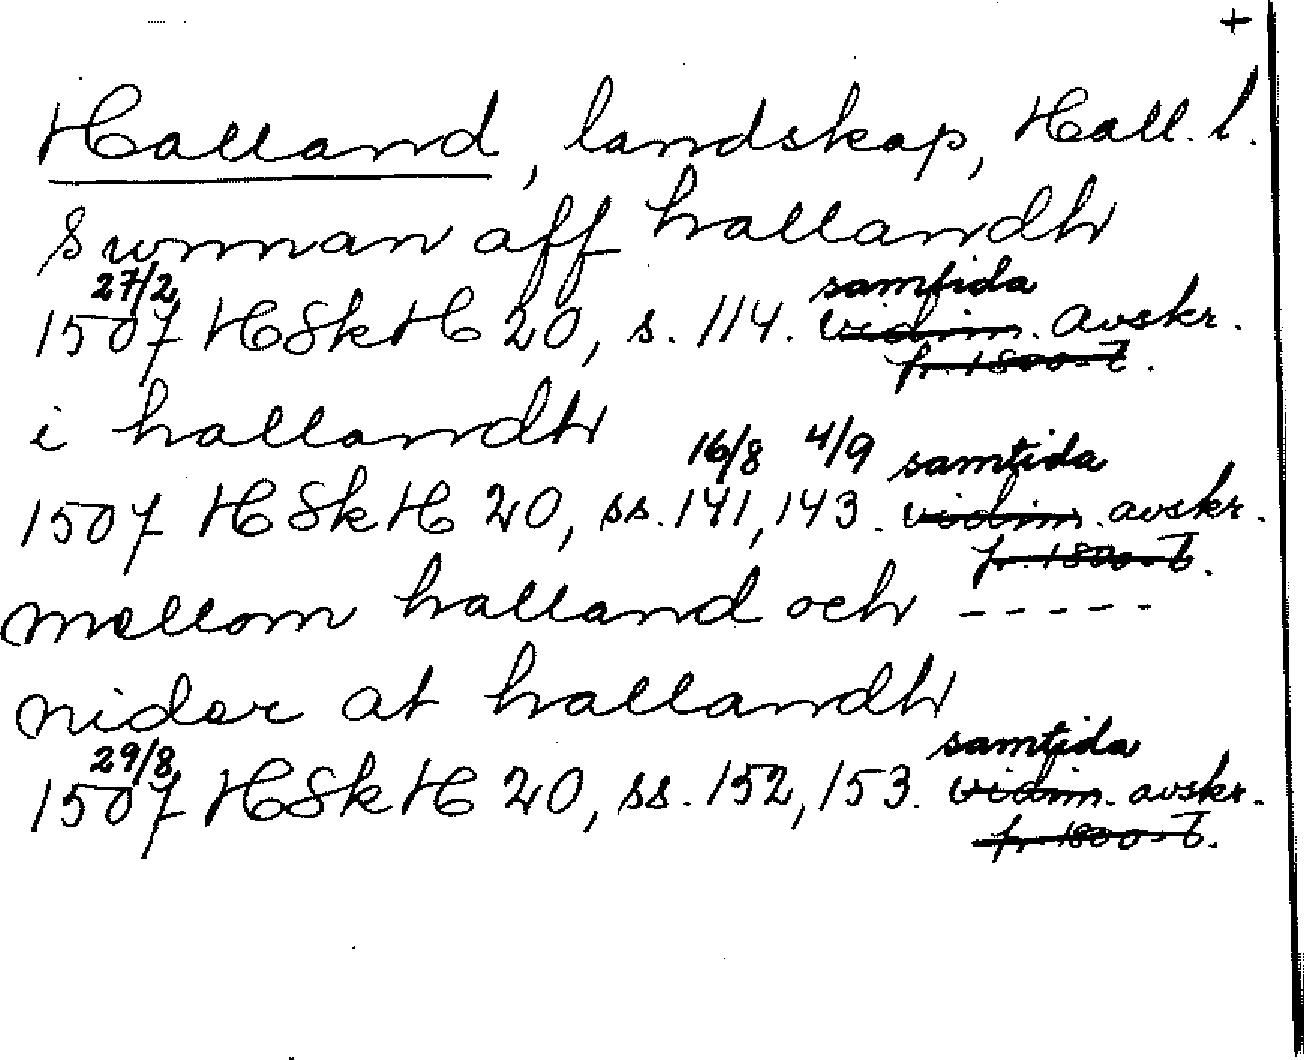 +
Halland, landskap, Hall. l.
sunnan aff hallandh
27/2 samtida
1507 HSkH 20, s. 114. vidim. avskr.
fr. 1800-t.
i hallandh
16/8 4/9 samtida
1507 HSkH 20, ss. 141, 143. vidim. avskr.
fr. 1800-t.
mellom halland och -----
nider at hallandh
29/8 samtida
1507 HSkH 20, ss. 152, 153. vidim. avskr.
fr. 1800-t.